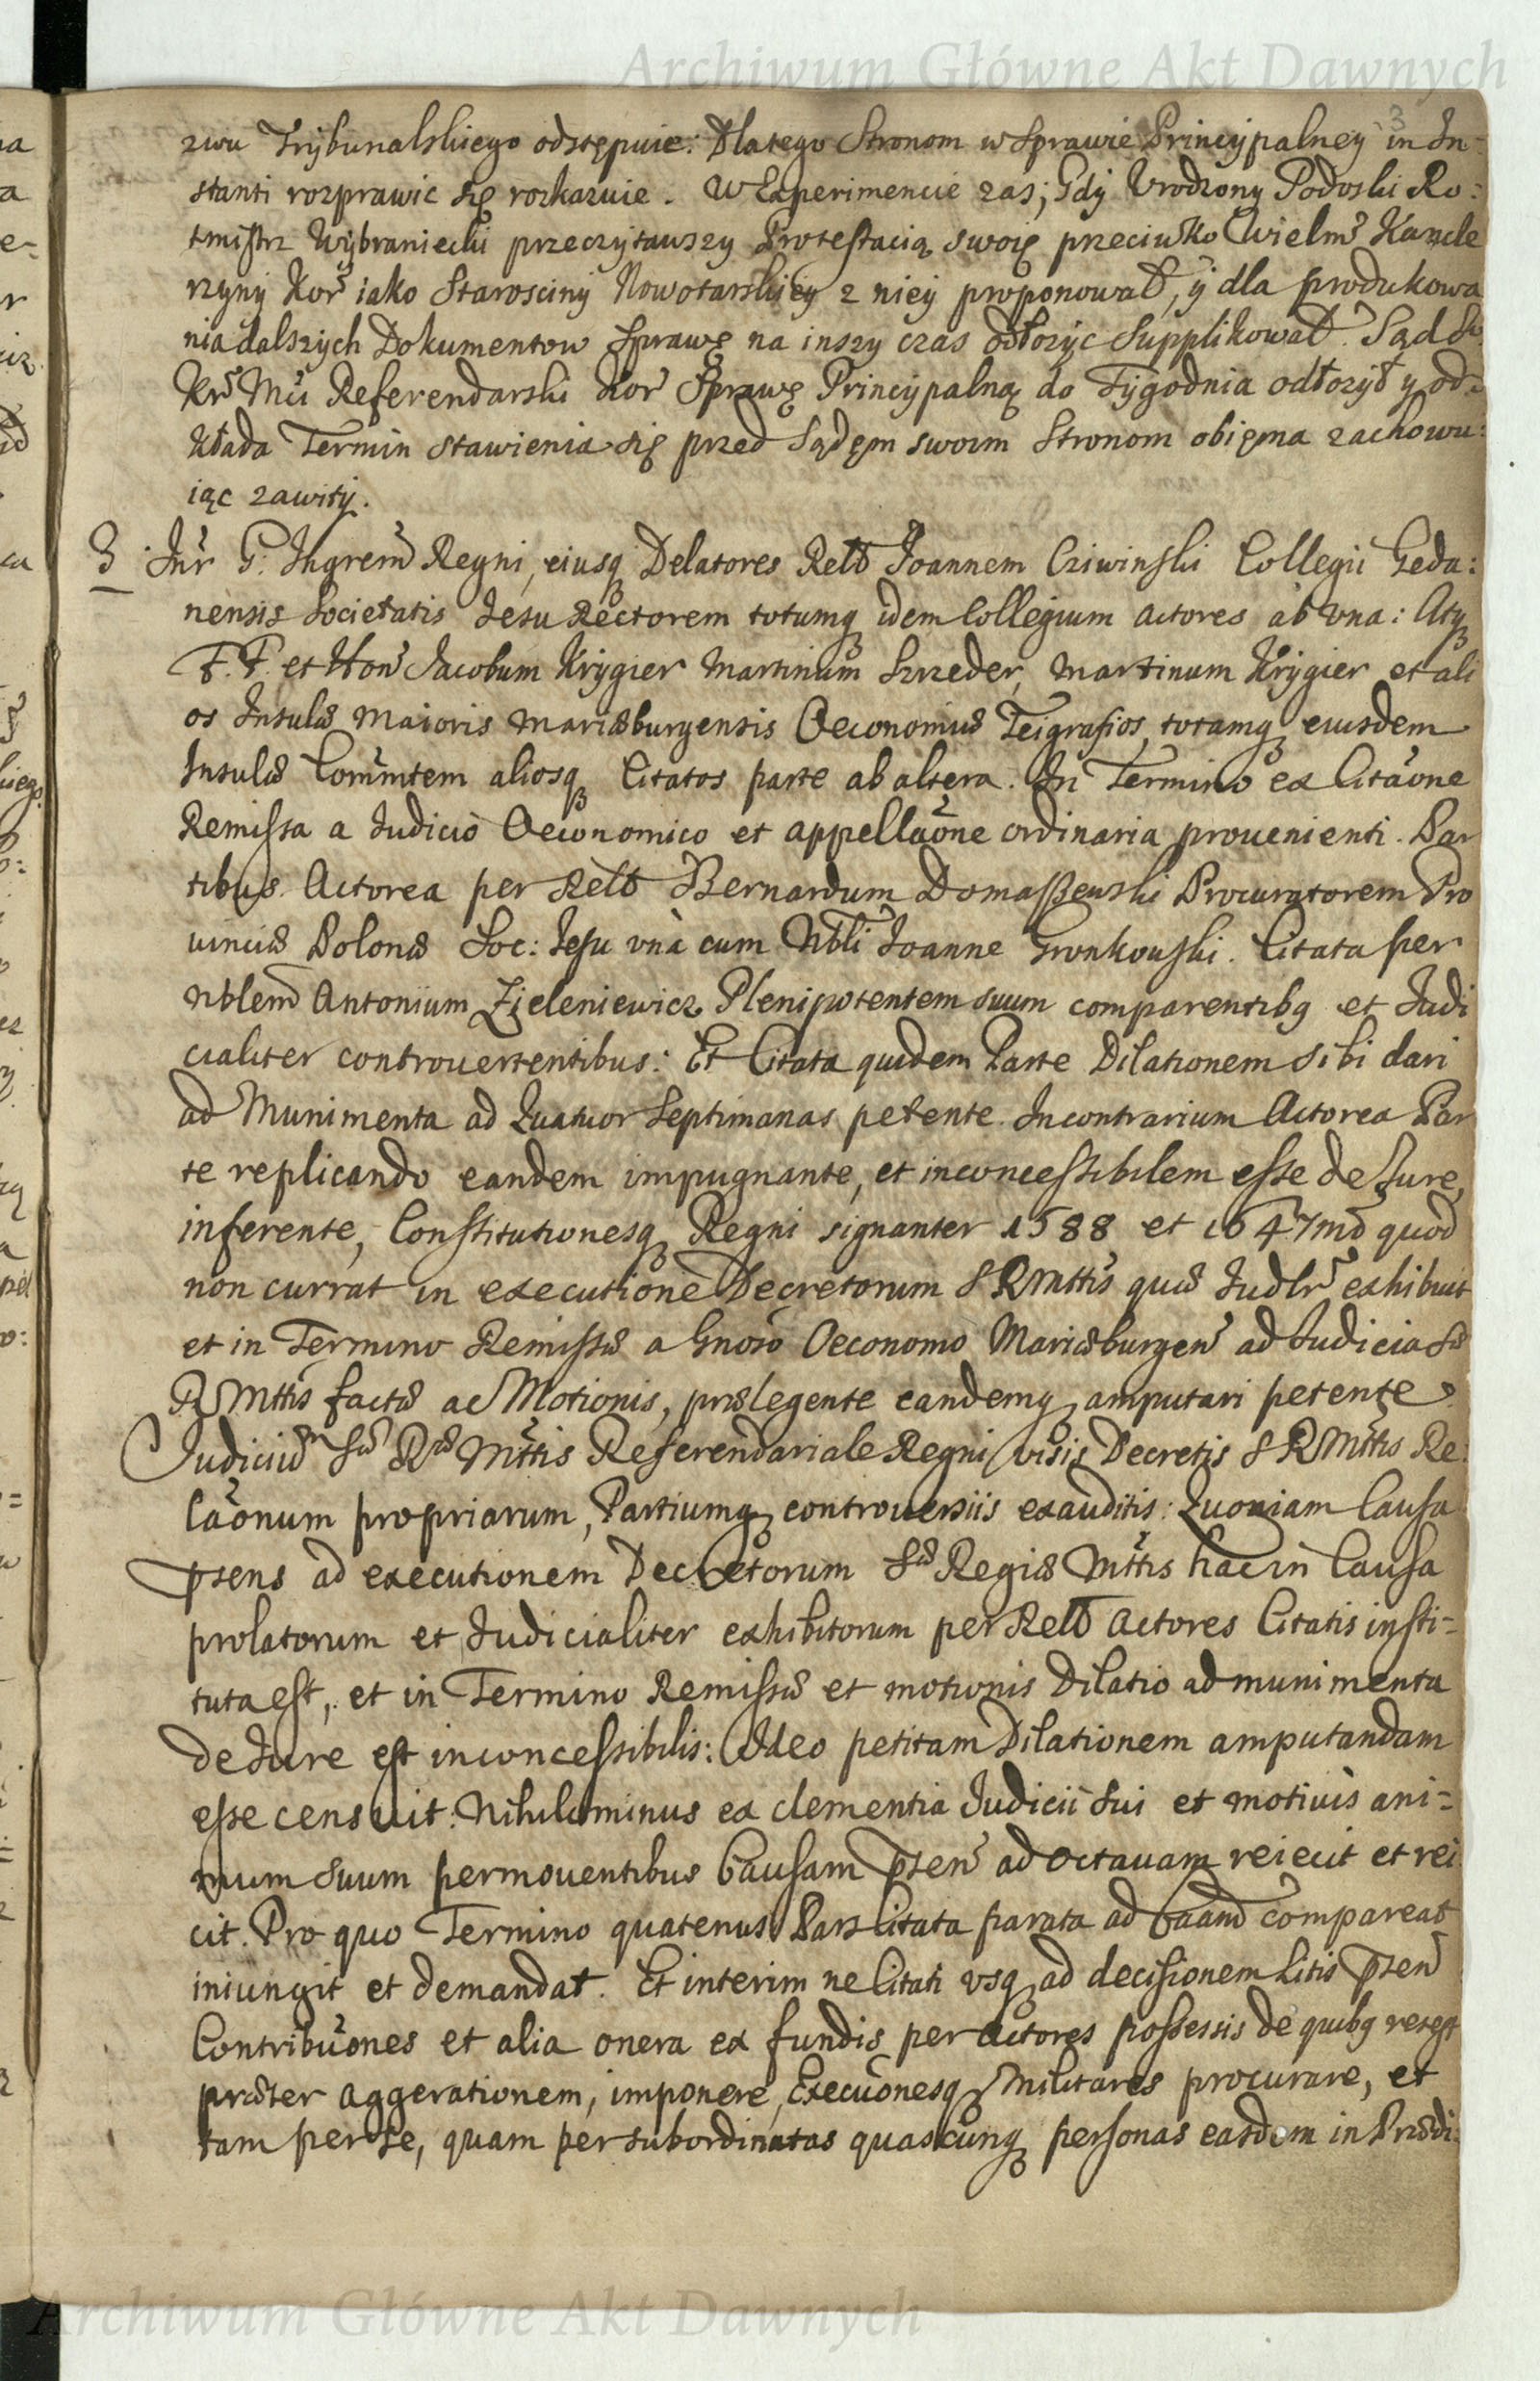 Archiwum Główne Akt Dawnych
zwu Trybunalskiego odstępuie: Dlatego Stronom w Sprawie Principalney in In-
stanti rozprawic się rozkazuie. W Experimencie zas; Gdy Urodzony Podoski Ro:
tmistrz Wybraniecki przeczytawszy Protestacią swoię przeciwko Wielm Kancle
rzyny Kor iako Starosciny Nowotarskiey z niey proponował, y dla produkowa
nia dalszych Dokumentow Sprawę na inszy czas odłozyc supplikował. Sąd Je
Kr Mci Referendarski Kor Sprawę Principalną do Tygodnia odłozył y od-
kłada Termin stawienia się przed Sądem swoim Stronom obiema zachowu:
iąc zawity.
3 Inr G. Ingrem Regni, eiusq Delatores Reld Joannem Cziwinski Collegii Geda:
nensis Societatis Jesu Rectorem totumq idem Collegium Actores ab una: Atq
F. F. et Hon Jacobum Krygier Martinum Szrzeder, Martinum Krygier et ali
os Insulæ Maioris Mariæburgensis Oeconomiæ Teigrafios, totamq eiusdem
Insulæ Commtem aliosq Citatos parte ab altera. In Termino ex Citaone
Remissa a Iudicio Oeconomico et appellaone ordinaria prouenienti. Par
tibus Actorea per Reld Bernardum Domaszewski Procuratorem Pro
uinciæ Polonæ Soc: Jesu unà cum Nbli Joanne Gronkowski. Citata per
Nblem Antonium Zieleniewicz Plenipotentem suum comparentibq et Iudi
cialiter controuertentibus: Et Citata quidem Parte Dilationem sibi dari
ad Munimenta ad Quatuor Septimanas petente. In contrarium Actorea Par
te replicando eandem impugnante, et inconcessibilem esse de Iure,
inferente, Constitutionesq Regni signanter 1588 et 1647 md quod
non currat in executione Decretorum S R Mttis quæ Iudlr exhibuit
et in Termino Remissæ a Gnoso Oeconomo Mariæburgen ad Iudicia Sæ
R Mttis factæ ac Motionis, prælegente eandemq amputari petente.
Iudicium Sæ Ræ Mttis Referendariale Regni visis Decretis S R Mttis Re:
laonum propriarum, Partiumq controuersiis exauditis: Quoniam Causa
psens ad executionem Decretorum Sæ Regiæ Mttis hac in Causa
prolatorum et Iudicialiter exhibitorum per Reld Actores Citatis insti-
tuta est, et in Termino Remissæ et motionis Dilatio ad munimenta
de Iure est inconcessibilis: Ideo petitam Dilationem amputandam
esse censuit. Nihilominus ex clementia Iudicii sui et motiuis ani-
mum suum permouentibus Causam psen ad octauam reiecit et rei
cit. Pro quo Termino quatenus Pars Citata parata ad Caam compareat
iniungit et demandat. Et interim ne Citati usq ad decisionem Litis psen
Contribuones et alia onera ex fundis per Actores possessis de quibq
præter aggerationem, imponere, Execuonesq Militares procurare, et
tam per se, quam per subordinatas quascunq personas easdem in Prædi:
Archiwum Główne Akt Dawnych